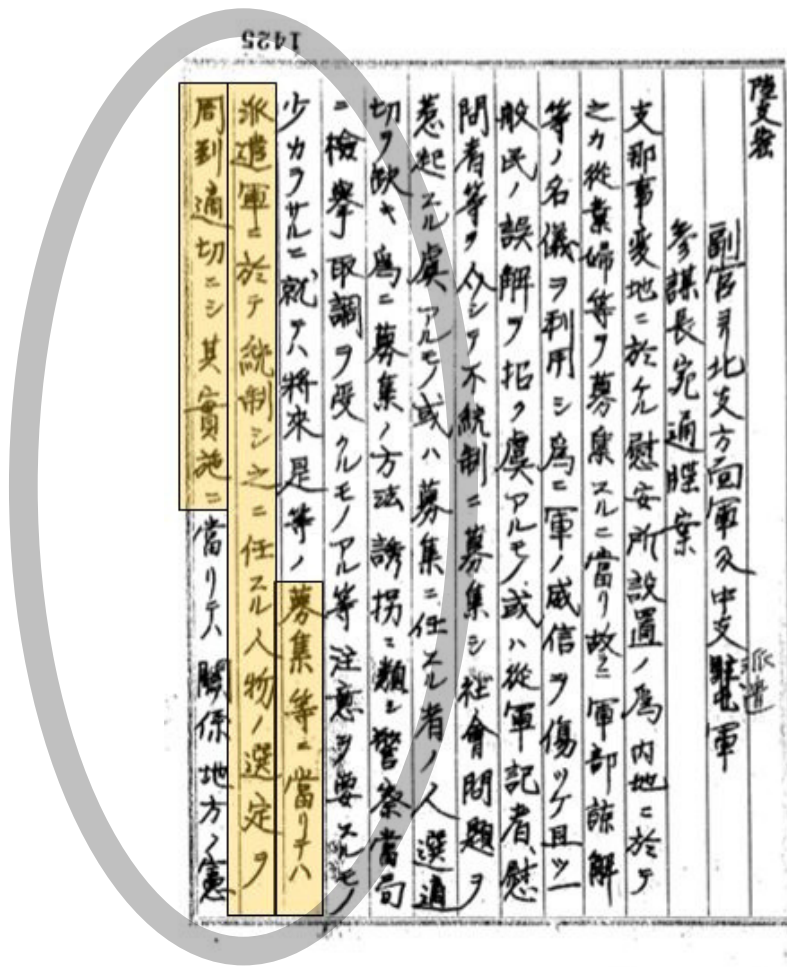 1425
陸支密
副官ヨリ北支方面軍及中支駐屯軍
派遣
参謀長宛通牒案
支那事変地ニ於ケル慰安所設置ノ為内地ニ於テ
之カ従業婦等ヲ募集スルニ當リ故ニ軍部諒解
等ノ名儀ヲ利用シ為ニ軍ノ威信ヲ傷ツケ且ツ一
般民ノ誤解ヲ招ク虞アルモノ或ハ從軍記者、慰
問者等ヲ介シテ不統制ニ募集シ社會問題ヲ
惹起スル虞アルモノ或ハ募集ニ任スル者ノ人選適
切ヲ欠キ為ニ募集ノ方法誘拐ニ類シ警察當局
ニ檢擧取調ヲ受クルモノアル等注意ヲ要スルモノ
少カラサルニ就テハ將來是等ノ募集等ニ當リテハ
派遣軍ニ於テ統制シ之ニ任スル人物ノ選定ヲ
周到適切ニシ其實施ニ當リテハ關係地方ノ憲